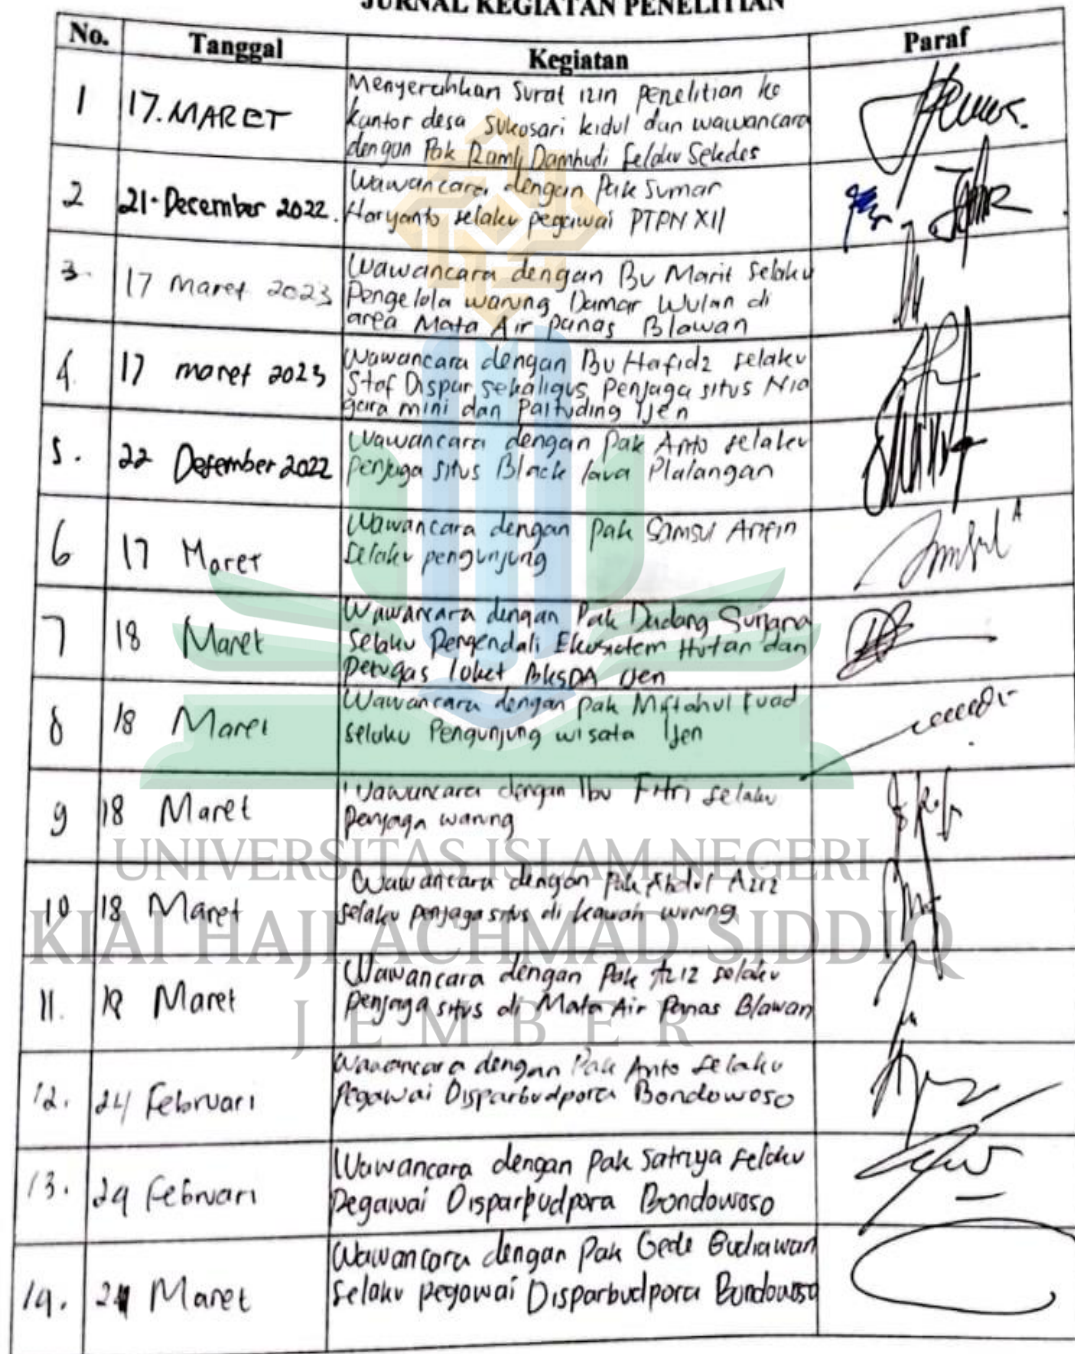 JURNAL KEGIATAN PENELITIAN
No. Tanggal Kegiatan Paraf
1 17. MARET Menyerahkan Surat izin penelitian ke
kantor desa Sukosari kidul dan wawancara
dengan Pak Ramli Damhudi selaku Sekdes
2 21. December 2022. Wawancara dengan Pak Sumar
Haryanto selaku pegawai PTPN XII
3. 17 Maret 2023 Wawancara dengan Bu Marit selaku
Pengelola warung Damar Wulan di
area Mata Air panas Blawan
4. 17 maret 2023 Wawancara dengan Bu Hafidz selaku
Staf Dispar sekaligus penjaga situs Nia
gara mini dan Paltuding Ijen
5. 22 Desember 2022 Wawancara dengan Pak Anto selaku
Penjaga situs Black lava Plalangan
6 17 Maret Wawancara dengan pak Samsul Arifin
selaku pengunjung
7 18 Maret Wawancara dengan Pak Dadang Surjana
selaku Pengendali Ekosistem Hutan dan
petugas loket BKSDA Ijen
8 18 Maret Wawancara dengan pak Miftahul Fuad
selaku Pengunjung wisata Ijen
9 18 Maret Wawancara dengan Ibu Fitri selaku
penjaga warung
10 18 Maret Wawancara dengan pak Abdul Aziz
selaku penjaga situs di kawah wurung
11. 18 Maret Wawancara dengan Pak Aziz selaku
Penjaga situs di Mata Air Panas Blawan
12. 24 Februari Wawancara dengan Pak Anto selaku
Pegawai Disparbudpora Bondowoso
13. 24 Februari Wawancara dengan pak Satriya selaku
Pegawai Disparbudpora Bondowoso
14. 24 Maret Wawancara dengan Pak Gede Budiawan
selaku pegawai Disparbudpora Bondowoso
UNIVERSITAS ISLAM NEGERI
KIAI HAJI ACHMAD SIDDIQ
JEMBER